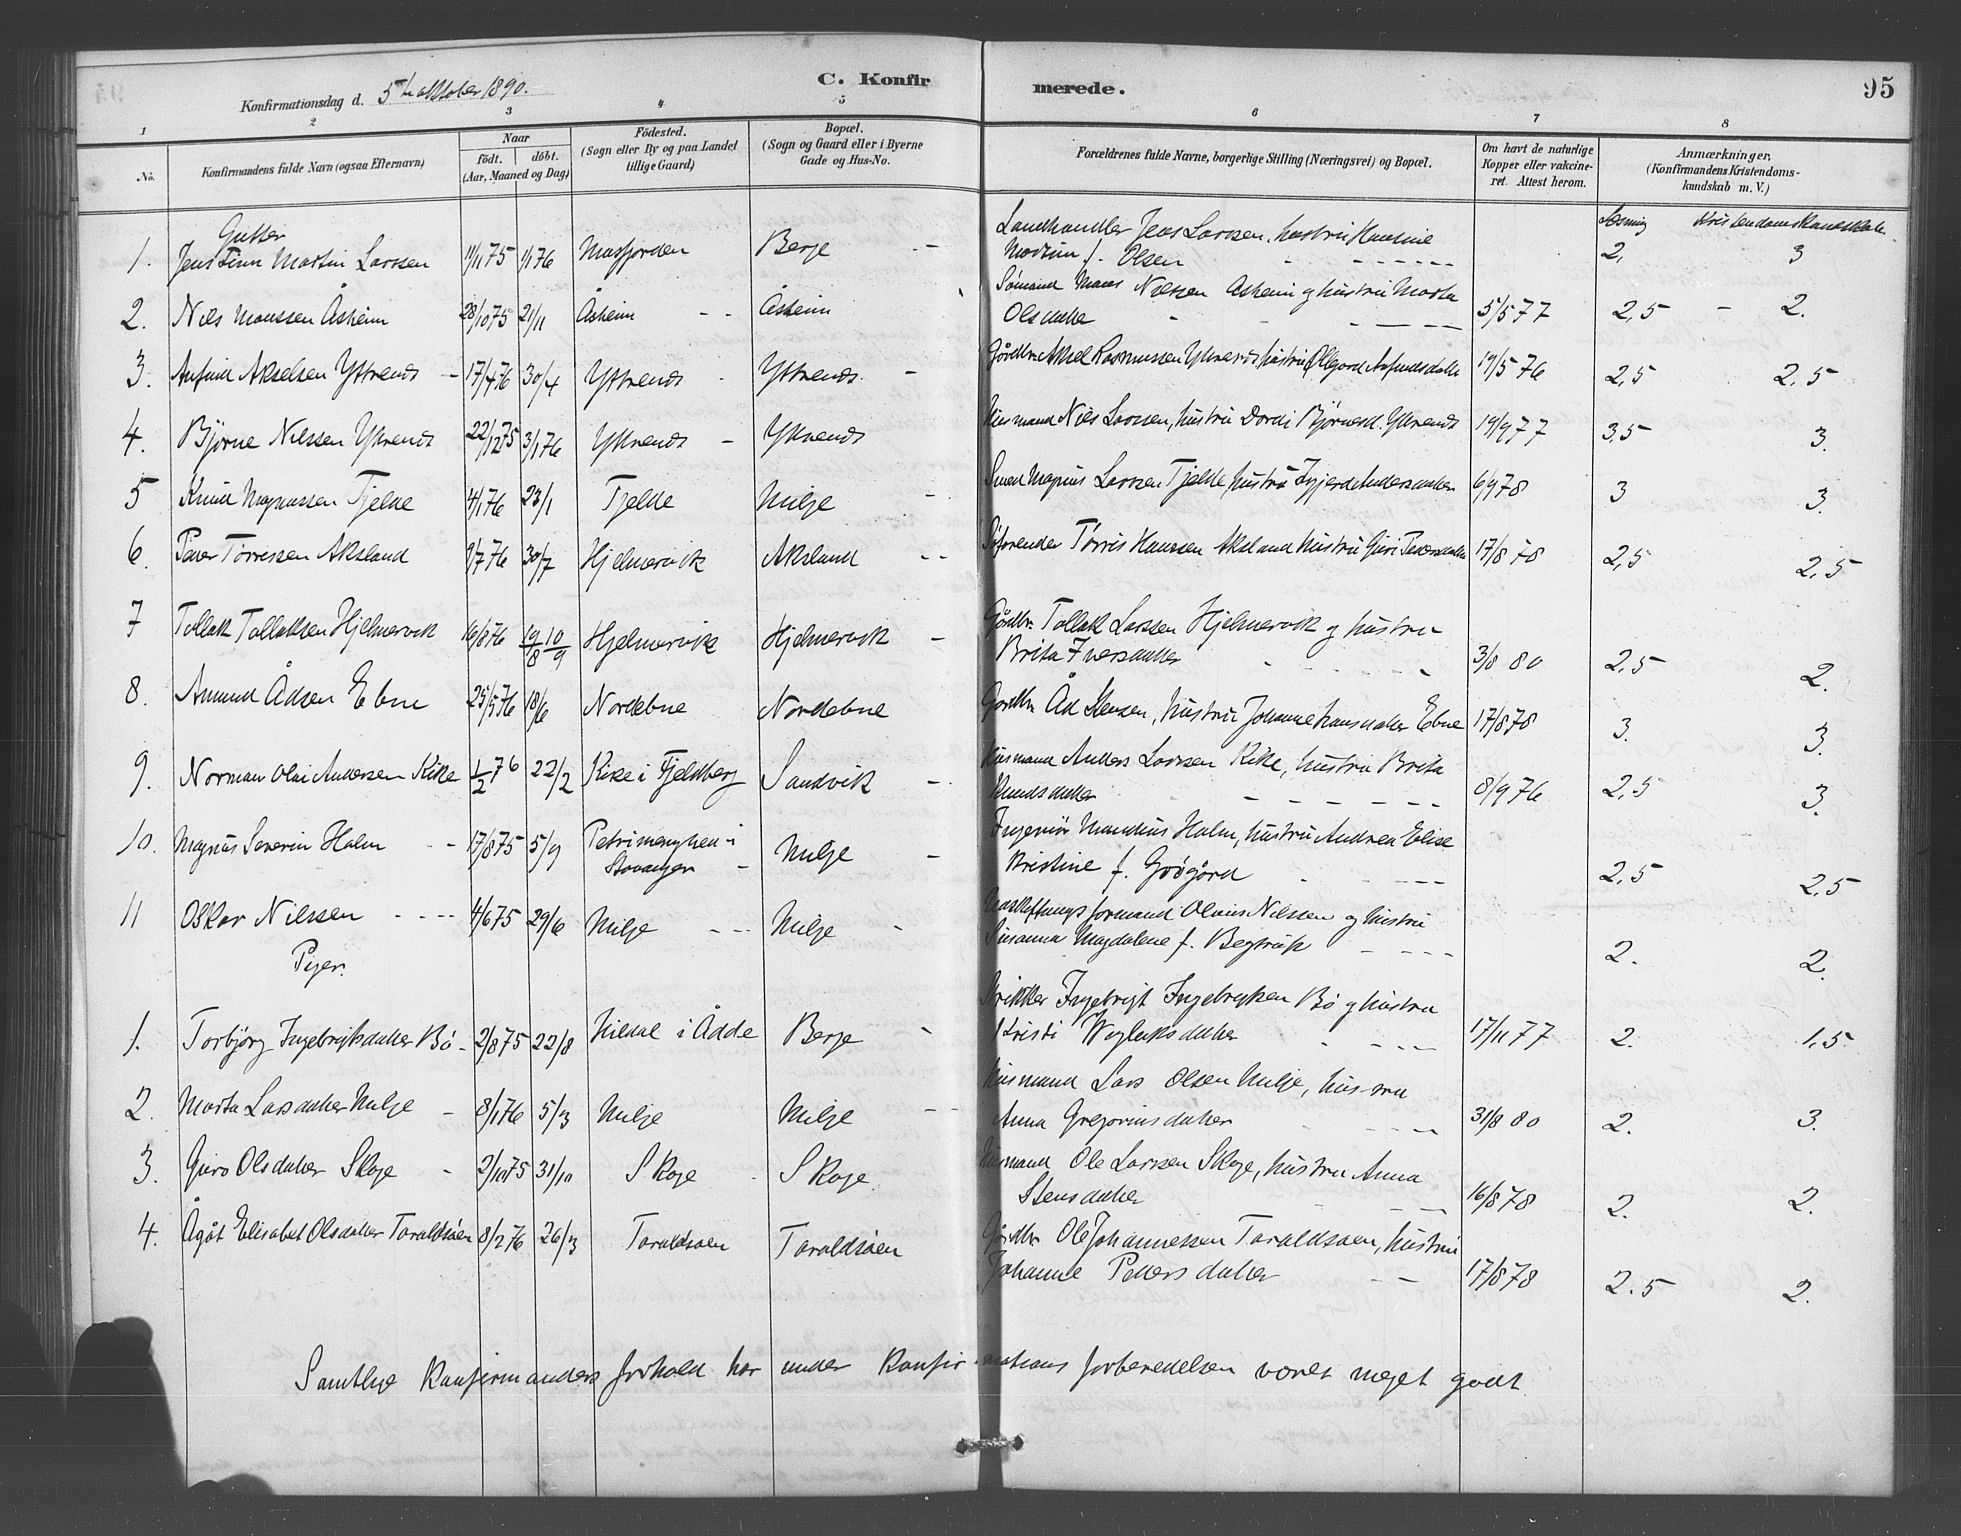 C. Konfirmerede. 95
Konfirmationsdag d. 5te oktober 1890.
1 2 3 4 5 6 7 8
No. Konfirmandens fulde Navn (ogsaa Efternavn) Naar födt. döbt. (Aar, Maaned og Dag) Födested. (Sogn eller By og paa Landet tillige Gaard) Bopæl. (Sogn og Gaard eller i Byerne Gade og Hus-No. Forældrenes fulde Navne, borgerlige Stilling (Næringsvei) og Bopæl. Om havt de naturlige Kopper eller vakcineret. Attest herom. Anmærkninger, (Konfirmandens Kristendomskundskab m. V.)
Læsning Kristendomskundskab
Gutter
1. Jens Finn Martin Larsen 11/11 75 1/1 76 Masfjorden Berje Landhandler Jens Larsen, hustru Hansine
f. Olsen 2, 3
2. Nils Monssen Åsheim 28/10 75 21/11 Åsheim Åsheim Sømand Mons Nilssen Åsheim og hustru Marta
Olsdatter 5/5 77 2,5 2.
3. Anfind Akselsen Yttrends 17/4 76 30/4 Yttrends Yttrends Gårdbr. Aksel Rasmussen Yttrends hustru Ollegard Anfindsdatter 19/5 76 2,5 2,5
4. Björne Nilssen Yttrends 22/12 75 3/1 76 Yttrends Yttrends Husmand Nils Larssen, hustru Dordi Björnsd. Yttrends 19/9 77 3,5 3.
5 Knud Magnussen Tjelde 4/1 76 23/1 Tjelde Milje Smed Magnus Larsen Tjelde, hustru Ingjerd Andersdatter 6/9 78 3 3.
6. Peder Törressen Aksland 9/7 76 30/7 Hjelmervik Aksland Törris Hanssen Aksland hustru Guri Pedersdatter 17/8 78 2,5 2,5
7 Tollak Tollaksen Hjelmervik 16/8 76 19/8 10/9 Hjelmervik Hjelmervik Gårdbr. Tollak Larssen Hjelmervik og hustru
Brita Iversdatter 3/8 80 2,5 2.
8. Amund Ådsen Ebne 25/5 76 18/6 Nordebne Nordebne Gårdbr. Åd Stensen, hustru Johanne Hansdatter Ebne 17/8 78 3. 3.
9. Norman Olai Andersen Kike 1/2 76 22/2 Kike i Fjeldberg Sandvik Husmand Anders Larsen Kike, hustru Brita
Knudsdatter 8/9 76 2,5 3.
10. Magnus Severin Holm 17/8 75 5/9 Petrimenighed i Stavanger Milje Ingeniör Mandius Holm, hustru Andrea Elise
Kristine f. Grögård 2,5 2,5
11 Oskar Nilssen 4/6 75 29/6 Milje Milje formand Olaus Nilssen og hustru
Susanna Magdalene f. Begtrup 2. 2.
Piger.
1. Torbjörg Ingebrigtsdatter Bö 2/8 75 22/8 Hildal i Ådde Berje Ingebrigt Ingebrigtsen Bö og hustru
Kristi 17/11 77 2. 1,5
2. Marta Larsdatter Milje 8/1 76 5/3 Milje Milje Husmand Lars Olsen Milje, hustru
Anna Gregoriusdatter 31/8 80 2. 3.
3. Guro Olsdatter Skoge 2/10 75 31/10 Skoge Skoge Husmand Ole Larssen Skoge, hustru Anna
Stensdatter 16/8 78 2. 2.
4. Ågåt Elisabet Olsdatter Taraldsöen 8/2 76 26/3 Taraldsöen Taraldsöen Gårdbr. Ole Johannessen Taraldsöen, hustru
Johanne Pedersdatter 17/8 78 2.5 2.
Samtlige Konfirmanders forhold har under Konfirmations forberedelsen været meget godt